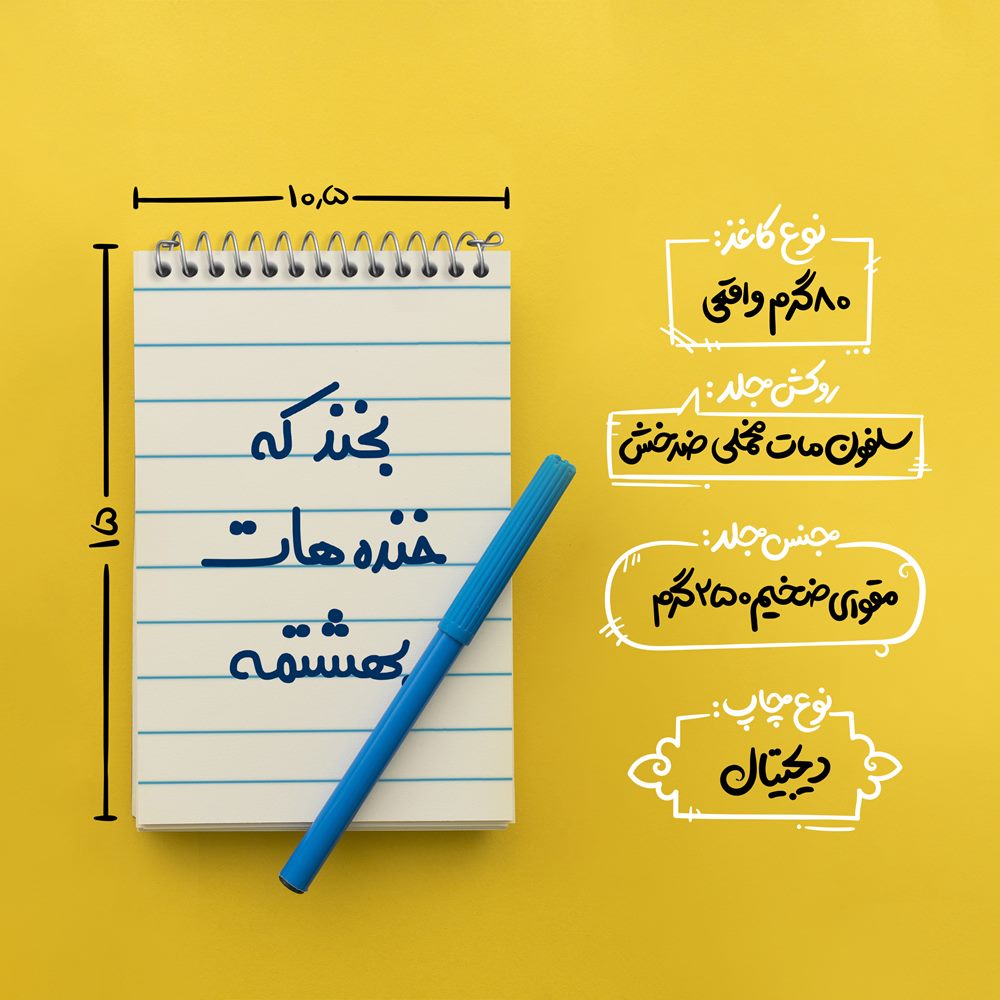 ۱۰٫۵
۱۵
بخند که
خنده هات
بهشتمه
نوع کاغذ:
۸۰گرم واقعی
روکش جلد:
سلفون مات مخملی ضدخش
جنس جلد:
مقوای ضخیم ۲۵۰گرم
نوع چاپ:
دیجیتال